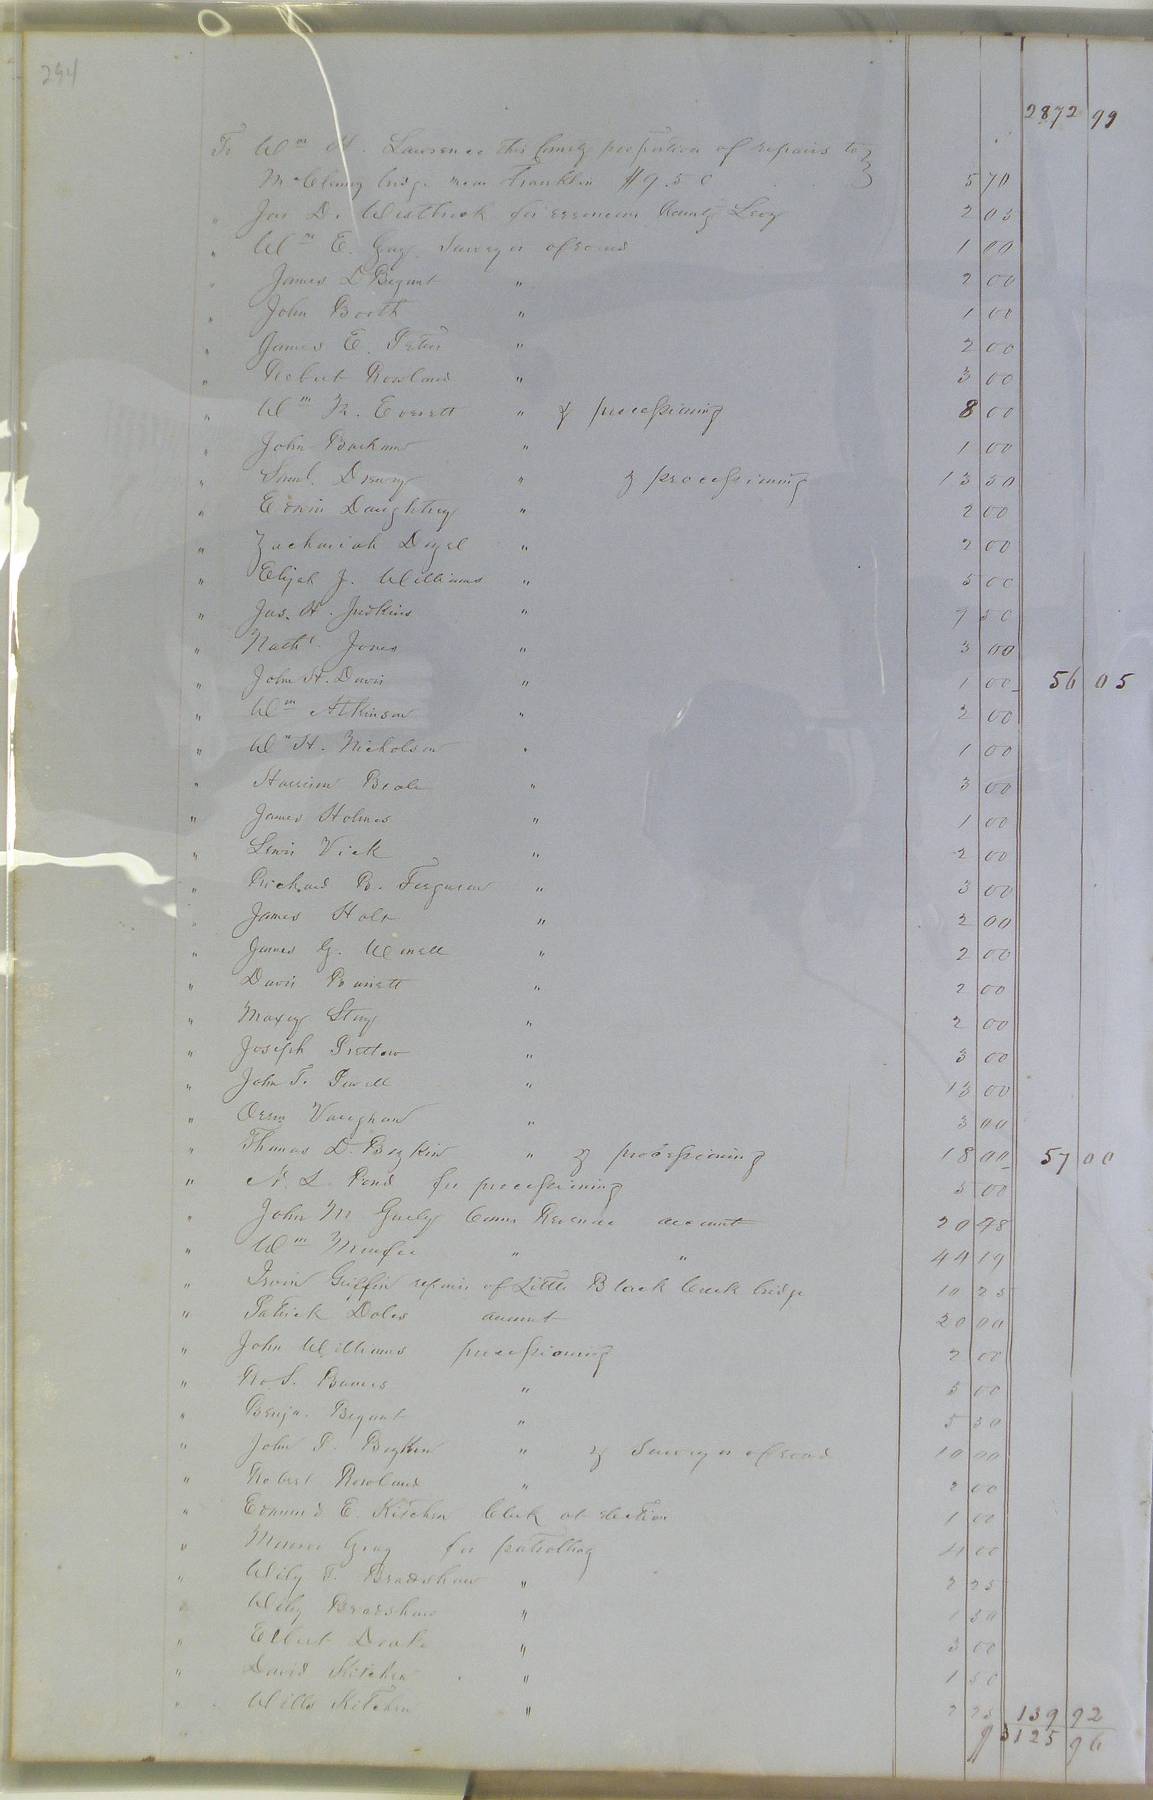 294
2872 99
To Wm H. Lawrence this County proportion of repairs to }
McCleny bridge near Franklin $9.50 5 70
" Jas D. Westbrook for erroneous County Levy 2 05
" Wm E. Gay Surveyor of road 1 00
" James D Bryant " 2 00
" John Booth " 1 00
" James E. " 2 00
" Robert Rowland " 3 00
" Wm R. Everett " & processioning 8 00
" John " 1 00
" Saml. Drewry " & processioning 13 50
" Edwin Daughtrey " 2 00
" Zachariah " 2 00
" Elijah J. Williams " 5 00
" Jas. H. Judkins " 7 50
" Nathl Jones " 3 00
" John H. Davis " 1 00 56 05
" Wm Atkinson " 2 00
" Wm H. Nicholson " 1 00
" Harrison Beale " 3 00
" James Holmes " 1 00
" Lewis Vick " 2 00
" Richard B. Ferguson " 3 00
" James Holt " 2 00
" James G. " 2 00
" Davis Barrett " 2 00
" Maxey " 2 00
" Joseph " 3 00
" John T. " 13 00
" Vaughan " 3 00
" Thomas D. Boykin " & processioning 18 00 57 00
" N. L. Pond for processioning 5 00
" John M Gurley Comr Revenue account 20 98
" Wm " " 44 19
" Irvin Griffin repairs of Little Black Creek bridge 10 25
" Patrick Doles account 20 00
" John Williams processioning 2 00
" Ro. S. Barnes " 5 00
" Benja. Bryant " 5 50
" John T. Boykin " & Surveyor of road 10 00
" Robert Rowland " 2 00
" Edmund E. Kitchen Clerk at election 1 00
" Gray for patrolling 4 00
" Wiley T. Bradshaw " 2 25
" Wiley Bradshaw " 1 50
" Elbert Drake " 3 00
" David Kitchen " 1 50
" Wills Kitchen " 2 25 139 92
3125 96